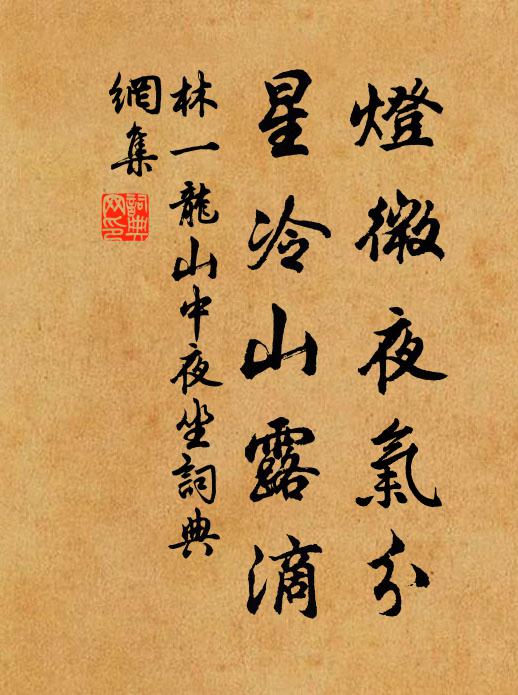 燈微夜氣分
星冷山露滴
林一龍山中夜坐詞典
網集
詞典网印